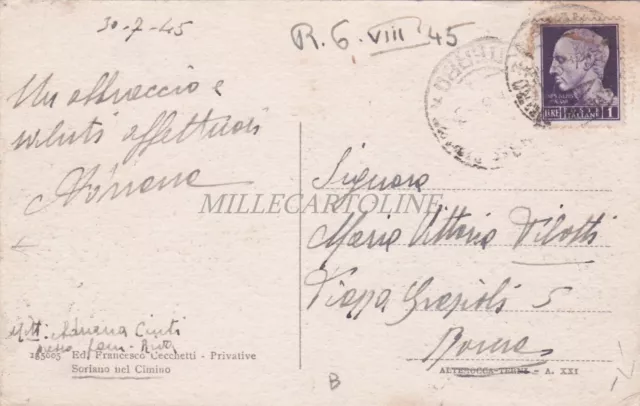 30-7-45
R. 6 VIII 45
LIRE POSTE ITALIANE 1
Un abbraccio e
saluti affettuosi
Adriana
MILLECARTOLINE
Signora
Maria Vittoria Vilotti
Piazza Grazioli 5
Roma
Mitt: Adriana Conti
presso fam.
285605 Ed. Francesco Cecchetti - Privative
Soriano nel Cimino
ALTEROCCA-TERNI - A. XXI
B